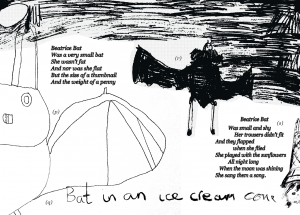 Beatrice Bat
Was a very small bat
She wasn't fat
And nor was she flat
But the size of a thumbnail
And the weight of a penny
(c)
(p)
Beatrice Bat
(s)
Was small and shy
Her trousers didn't fit
And they flapped
when she flied
She played with the sunflowers
All night long
When the moon was shining
She sang them a song.
(q)
Bat in an ice cream cone